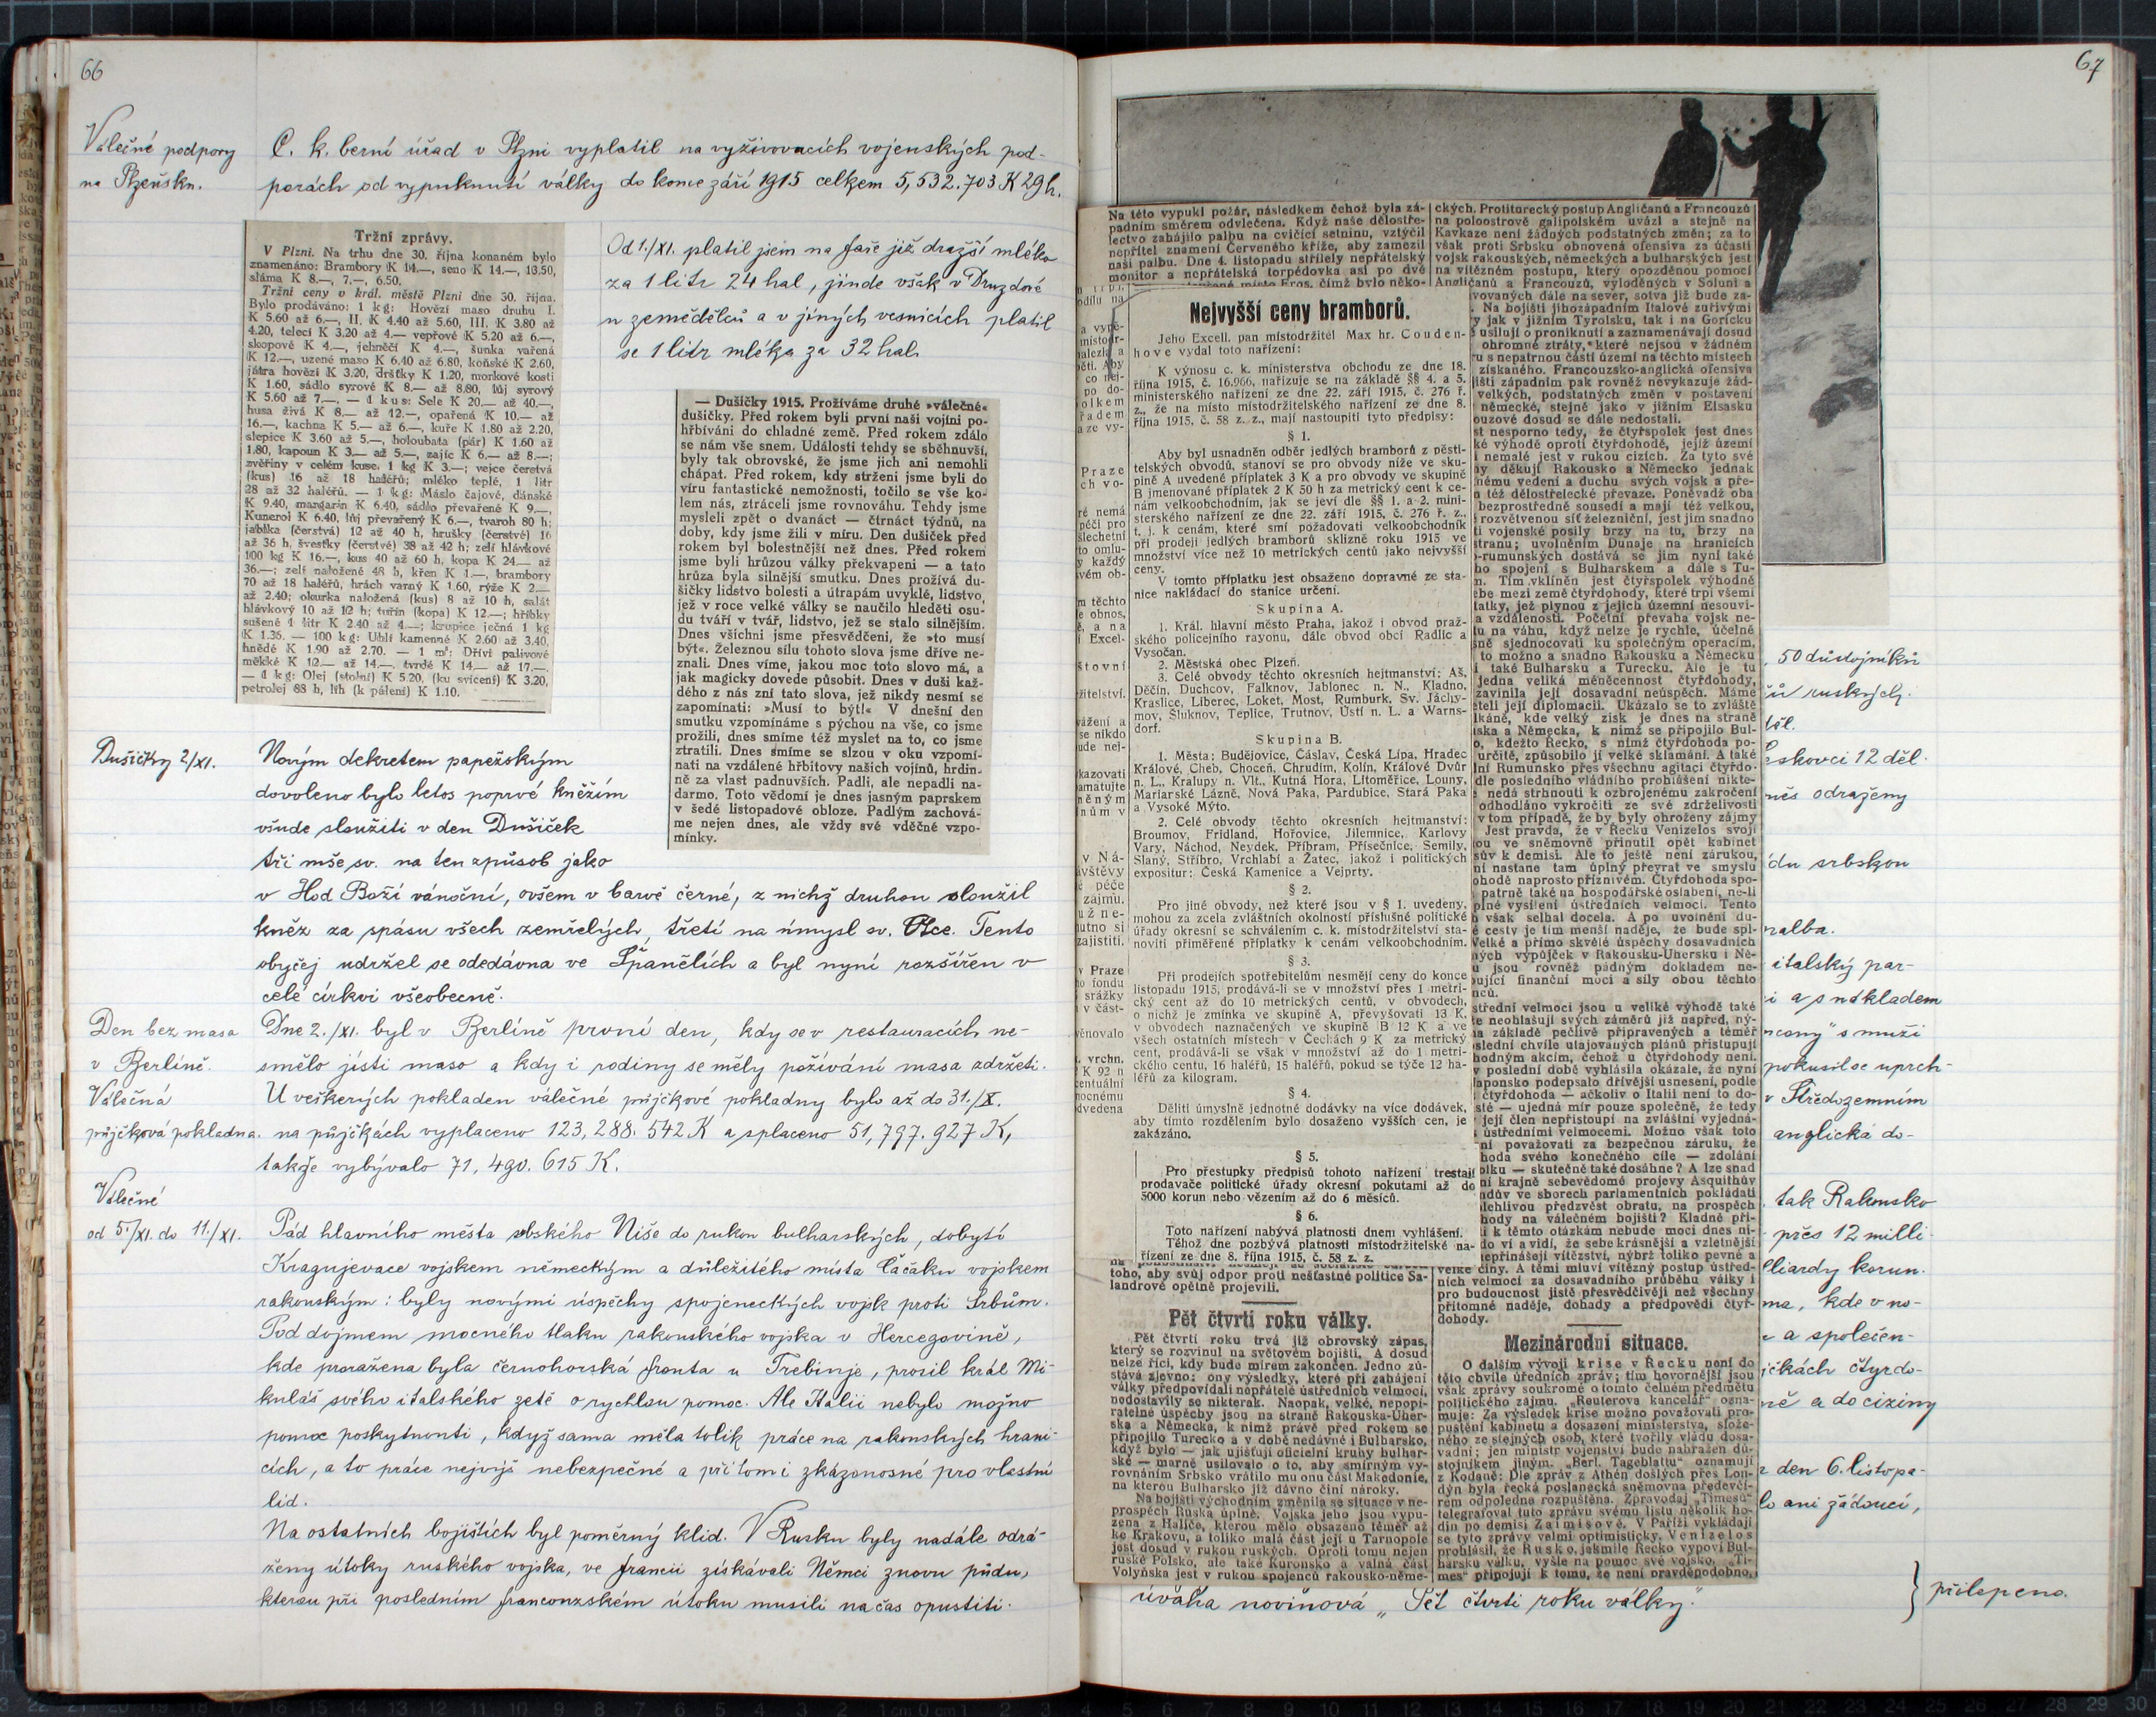 66
Válečné podpory
na Plzeňsku.
C. k. berní úřad v Plzni vyplatil na vyživovacích vojenských pod-
porách od vypuknutí války do konce září 1915 celkem 5,532.703 K 29 h.
Tržní zprávy.
V Plzni. Na trhu dne 30. října konaném bylo
znamenáno: Brambory K 14.—, seno K 14.—, 13.50,
sláma K 8.—, 7.—, 6.50.
Tržní ceny v král. městě Plzni dne 30. října.
Bylo prodáváno: 1 kg: Hovězí maso druhu I.
K 5.60 až 6.—, II. K 4.40 až 5.60, III. K 3.80 až
4.20, telecí K 3.20 až 4.— vepřové K 5.20 až 6.—,
skopové K 4.—, jehněčí K 4.—, šunka vařená
K 12.—, uzené maso K 6.40 až 6.80, koňské K 2.60,
játra hovězí K 3.20, dršťky K 1.20, morkové kosti
K 1.60, sádlo syrové K 8.— až 8.80, lůj syrový
K 5.60 až 7.—. — 1 kus: Sele K 20.— až 40.—,
husa živá K 8.— až 12.—, opařená K 10.— až
16.—, kachna K 5.— až 6.—, kuře K 1.80 až 2.20,
slepice K 3.60 až 5.—, holoubata (pár) K 1.60 až
1.80, kapoun K 3.— až 5.—, zajíc K 6.— až 8.—;
zvěřiny v celém kuse. 1 kg K 3.—; vejce čerstvá
(kus) 16 až 18 haléřů; mléko teplé, 1 litr
28 až 32 haléřů. — 1 kg: Máslo čajové, dánské
K 9.40, margarin K 6.40, sádlo převařené K 9.—,
Kunerol K 6.40, lůj převařený K 6.—, tvaroh 80 h;
jablka (čerstvá) 12 až 40 h, hrušky (čerstvé) 16
až 36 h, švestky (čerstvé) 38 až 42 h; zelí hlávkové
100 kg K 16.—, kus 40 až 60 h, kopa K 24.— až
36.—; zelí naložené 48 h, křen K 1.—, brambory
70 až 18 haléřů, hrách varný K 1.60, rýže K 2.—
až 2.40; okurka naložená (kus) 8 až 10 h, salát
hlávkový 10 až 12 h; tuřín (kopa) K 12.—; hříbky
sušené 1 litr K 2.40 až 4.—; krupice ječná 1 kg
K 1.36. — 100 kg: Uhlí kamenné K 2.60 až 3.40,
hnědé K 1.90 až 2.70. — 1 m³: Dříví palivové
měkké K 12.— až 14.—, tvrdé K 14.— až 17.—.
— 1 kg: Olej (stolní) K 5.20, (ku svícení) K 3.20,
petrolej 88 h, líh (k pálení) K 1.10.
Od 1./XI. platil jsem na faře již dražší mléko
za 1 litr 24 hal, jinde však v Druzdově
u zemědělců a v jiných vesnicích platil
se 1 litr mléka za 32 hal.
— Dušičky 1915. Prožíváme druhé »válečné«
dušičky. Před rokem byli první naši vojíni po-
hřbíváni do chladné země. Před rokem zdálo
se nám vše snem. Události tehdy se sběhnuvší,
byly tak obrovské, že jsme jich ani nemohli
chápat. Před rokem, kdy strženi jsme byli do
víru fantastické nemožnosti, točilo se vše ko-
lem nás, ztráceli jsme rovnováhu. Tehdy jsme
mysleli zpět o dvanáct — čtrnáct týdnů, na
doby, kdy jsme žili v míru. Den dušiček před
rokem byl bolestnější než dnes. Před rokem
jsme byli hrůzou války překvapeni — a tato
hrůza byla silnější smutku. Dnes prožívá du-
šičky lidstvo bolesti a útrapám uvyklé, lidstvo,
jež v roce velké války se naučilo hleděti osu-
du tváří v tvář, lidstvo, jež se stalo silnějším.
Dnes všichni jsme přesvědčeni, že »to musí
být«. Železnou sílu tohoto slova jsme dříve ne-
znali. Dnes víme, jakou moc toto slovo má, a
jak magicky dovede působit. Dnes v duši kaž-
dého z nás zní tato slova, jež nikdy nesmí se
zapomínati: »Musí to být!« V dnešní den
smutku vzpomínáme s pýchou na vše, co jsme
prožili, dnes smíme též myslet na to, co jsme
ztratili. Dnes smíme se slzou v oku vzpomí-
nati na vzdálené hřbitovy našich vojínů, hrdin-
ně za vlast padnuvších. Padli, ale nepadli na-
darmo. Toto vědomí je dnes jasným paprskem
v šedé listopadové obloze. Padlým zachová-
me nejen dnes, ale vždy své vděčné vzpo-
mínky.
Dušičky 2/XI.
Novým dekretem papežským
dovoleno bylo letos poprvé kněžím
všude sloužiti v den Dušiček
tři mše sv. na ten způsob jako
v Hod Boží vánoční, ovšem v barvě černé, z nichž druhou sloužil
kněz za spásu všech zemřelých, třetí na úmysl sv. Otce. Tento
obyčej udržel se odedávna ve Španělích a byl nyní rozšířen v
celé církvi všeobecně.
Den bez masa
v Berlíně.
Dne 2./XI. byl v Berlíně první den, kdy se v restauracích ne-
smělo jísti maso a kdy i rodiny se měly požívání masa zdržeti.
Válečná
půjčková pokladna.
U veškerých pokladen válečné půjčkové pokladny bylo až do 31./X.
na půjčkách vyplaceno 123,288.542 K a splaceno 51,797.927 K,
takže vybývalo 71,490.615 K.
Válečné
od 5./XI. do 11./XI.
Pád hlavního města srbského Niše do rukou bulharských, dobytí
Kragujevace vojskem německým a důležitého místa Čačaku vojskem
rakouským: byly novými úspěchy spojeneckých vojsk proti Srbům.
Pod dojmem mocného tlaku rakouského vojska v Hercegovině,
kde proražena byla černohorská fronta u Trebinje, prosil král Mi-
kuláš svého italského zetě o rychlou pomoc. Ale Italii nebylo možno
pomoc poskytnouti, když sama měla tolik práce na rakouských hrani-
cích, a to práce nejvýš nebezpečné a při tom i zkázonosné pro vlastní
lid.
Na ostatních bojištích byl poměrný klid. V Rusku byly nadále odrá-
ženy útoky ruského vojska, ve Francii získávali Němci znovu půdu,
kterou při posledním francouzském útoku musili na čas opustiti.
67
Na této vypukl požár, následkem čehož byla zá-
padním směrem odvlečena. Když naše dělostře-
lectvo zahájilo palbu na cvičící setninu, vztýčil
nepřítel znamení Červeného kříže, aby zamezil
naši palbu. Dne 4. listopadu střílely nepřátelský
monitor a nepřátelská torpédovka asi po dvě
Nejvyšší ceny bramborů.
Jeho Excell. pan místodržitel Max hr. Couden-
hove vydal toto nařízení:
K výnosu c. k. ministerstva obchodu ze dne 18.
října 1915, č. 16.966, nařizuje se na základě §§ 4. a 5.
ministerského nařízení ze dne 22. září 1915, č. 276 ř.
z., že na místo místodržitelského nařízení ze dne 8.
října 1915, č. 58 z. z., mají nastoupiti tyto předpisy:
§ 1.
Aby byl usnadněn odběr jedlých bramborů z pěsti-
telských obvodů, stanoví se pro obvody níže ve sku-
pině A uvedené příplatek 3 K a pro obvody ve skupině
B jmenované příplatek 2 K 50 h za metrický cent k ce-
nám velkoobchodním, jak se jeví dle §§ 1. a 2. mini-
sterského nařízení ze dne 22. září 1915, č. 276 ř. z.,
t. j. k cenám, které smí požadovati velkoobchodník
při prodeji jedlých bramborů sklizně roku 1915 ve
množství více než 10 metrických centů jako nejvyšší
ceny.
V tomto příplatku jest obsaženo dopravné ze sta-
nice nakládací do stanice určení.
Skupina A.
1. Král. hlavní město Praha, jakož i obvod praž-
ského policejního rayonu, dále obvod obcí Radlic a
Vysočan.
2. Městská obec Plzeň.
3. Celé obvody těchto okresních hejtmanství: Aš,
Děčín, Duchcov, Falknov, Jablonec n. N., Kladno,
Kraslice, Liberec, Loket, Most, Rumburk, Sv. Jáchy-
mov, Šluknov, Teplice, Trutnov, Ústí n. L. a Warns-
dorf.
Skupina B.
1. Města: Budějovice, Čáslav, Česká Lípa, Hradec
Králové, Cheb, Choceň, Chrudim, Kolín, Králové Dvůr
n. L., Kralupy n. Vlt., Kutná Hora, Litoměřice, Louny,
Mariarské Lázně, Nová Paka, Pardubice, Stará Paka
a Vysoké Mýto.
2. Celé obvody těchto okresních hejtmanství:
Broumov, Frídland, Hořovice, Jilemnice, Karlovy
Vary, Náchod, Neydek, Příbram, Přísečnice, Semily,
Slaný, Stříbro, Vrchlabí a Žatec, jakož i politických
expositur: Česká Kamenice a Vejprty.
§ 2.
Pro jiné obvody, než které jsou v § 1. uvedeny,
mohou za zcela zvláštních okolností příslušné politické
úřady okresní se schválením c. k. místodržitelství sta-
noviti přiměřené příplatky k cenám velkoobchodním.
§ 3.
Při prodejích spotřebitelům nesmějí ceny do konce
listopadu 1915, prodává-li se v množství přes 1 metri-
cký cent až do 10 metrických centů, v obvodech,
o nichž je zmínka ve skupině A, převyšovati 13 K,
v obvodech naznačených ve skupině B 12 K a ve
všech ostatních místech v Čechách 9 K za metrický
cent, prodává-li se však v množství až do 1 metri-
ckého centu, 16 haléřů, 15 haléřů, pokud se týče 12 ha-
léřů za kilogram.
§ 4.
Děliti úmyslně jednotné dodávky na více dodávek,
aby tímto rozdělením bylo dosaženo vyšších cen, je
zakázáno.
§ 5.
Pro přestupky předpisů tohoto nařízení trestají
prodavače politické úřady okresní pokutami až do
5000 korun nebo vězením až do 6 měsíců.
§ 6.
Toto nařízení nabývá platnosti dnem vyhlášení.
Téhož dne pozbývá platnosti místodržitelské na-
řízení ze dne 8. října 1915, č. 58 z. z.
toho, aby svůj odpor proti nešťastné politice Sa-
landrově opětně projevili.
Pět čtvrtí roku války.
Pět čtvrtí roku trvá již obrovský zápas,
který se rozvinul na světovém bojišti. A dosud
nelze říci, kdy bude mírem zakončen. Jedno zů-
stává zjevno: ony výsledky, které při zahájení
války předpovídali nepřátelé ústředních velmocí,
nedostavily se nikterak. Naopak, velké, nepopí-
ratelné úspěchy jsou na straně Rakouska-Uher-
ska a Německa, k nimž právě před rokem se
připojilo Turecko a v době nedávné i Bulharsko,
když bylo — jak ujišťují oficielní kruhy bulhar-
ské — marně usilovalo o to, aby smírným vy-
rovnáním Srbsko vrátilo mu onu část Makedonie,
na kterou Bulharsko již dávno činí nároky.
Na bojišti východním změnila se situace v ne-
prospěch Ruska úplně. Vojska jeho jsou vypu-
zena z Haliče, kterou mělo obsazeno téměř až
ke Krakovu, a toliko malá část její u Tarnopole
jest dosud v rukou ruských. Oproti tomu nejen
ruské Polsko, ale také Kuronsko a valná část
Volyňska jest v rukou spojenců rakousko-něme-
ckých. Protiturecký postup Angličanů a Francouzů
na poloostrově galipolském uvázl a stejně na
Kavkaze není žádných podstatných změn; za to
však proti Srbsku obnovená ofensiva za účasti
vojsk rakouských, německých a bulharských jest
na vítězném postupu, který opozděnou pomocí
Angličanů a Francouzů, vyloděných v Soluni a
vovaných dále na sever, sotva již bude za-
. Na bojišti jihozápadním Italové zuřivými
y jak v jižním Tyrolsku, tak i na Goricku
usilují o proniknutí a zaznamenávají dosud
ohromné ztráty, které nejsou v žádném
u s nepatrnou částí území na těchto místech
získaného. Francouzsko-anglická ofensiva
išti západním pak rovněž nevykazuje žád-
velkých, podstatných změn v postavení
německé, stejně jako v jižním Elsasku
ouzové dosud se dále nedostali.
st nesporno tedy, že čtyřspolek jest dnes
ké výhodě oproti čtyřdohodě, jejíž území
nemalé jest v rukou cizích. Za tyto své
hy děkují Rakousko a Německo jednak
nému vedení a duchu svých vojsk a pře-
též dělostřelecké převaze. Poněvadž oba
bezprostředně sousedí a mají též velkou,
rozvětvenou síť železniční, jest jim snadno
ti vojenské posily brzy na tu, brzy na
stranu; uvolněním Dunaje na hranicích
-rumunských dostává se jim nyní také
ho spojení s Bulharskem a dále s Tu-
m. Tím vklíněn jest čtyřspolek výhodně
ebe mezi země čtyřdohody, které trpí všemi
latky, jež plynou z jejich územní nesouvi-
a vzdálenosti. Početní převaha vojsk ne-
u na váhu, když nelze je rychle, účelně
sně sjednocovati ku společným operacím,
to možno a snadno Rakousku a Německu
také Bulharsku a Turecku. Ale je tu
jedna veliká méněcennost čtyřdohody,
zavinila její dosavadní neúspěch. Máme
eteli její diplomacii. Ukázalo se to zvláště
lkáně, kde velký zisk je dnes na straně
ska a Německa, k nimž se připojilo Bul-
o, kdežto Řecko, s nímž čtyřdohoda po-
určitě, způsobilo jí velké sklamání. A také
lní Rumunsko přes všechnu agitaci čtyřdo-
dle posledního vládního prohlášení nikte-
nedá strhnouti k ozbrojenému zakročení
odhodláno vykročiti ze své zdrželivosti
v tom případě, že by byly ohroženy zájmy
Jest pravda, že v Řecku Venizelos svojí
ou ve sněmovně přinutil opět kabinet
sův k demisi. Ale to ještě není zárukou,
ní nastane tam úplný převrat ve smyslu
ohodě naprosto příznivém. Čtyřdohoda spo-
patrně také na hospodářské oslabení, ne-li
plné vysílení ústředních velmocí. Tento
však selhal docela. A po uvolnění du-
cesty je tím menší naděje, že bude spl-
Velké a přímo skvělé úspěchy dosavadních
ých výpůjček v Rakousku-Uhersku i Ně-
u jsou rovněž pádným dokladem ne-
ující finanční moci a síly obou těchto
nců.
střední velmoci jsou u veliké výhodě také
e neohlašují svých záměrů již napřed, ný-
a základě pečlivě připravených a téměř
slední chvíle utajovaných plánů přistupují
hodným akcím, čehož u čtyřdohody není.
v poslední době vyhlásila okázale, že nyní
aponsko podepsalo dřívější usnesení, podle
čtyřdohoda — ačkoliv o Italii není to do-
sté — ujedná mír pouze společně, že tedy
její člen nepřistoupí na zvláštní vyjedná-
ústředními velmocemi. Možno však toto
ní považovati za bezpečnou záruku, že
hoda svého konečného cíle — zdolání
olku — skutečně také dosáhne? A lze snad
ní krajně sebevědomé projevy Asquithův
adův ve sborech parlamentních pokládati
lehlivou předzvěst obratu, na prospěch
hody na válečném bojišti? Kladně při-
i k těmto otázkám nebude moci dnes ni-
do ví a vidí, že sebekrásnější a vzletnější
epřinášejí vítězství, nýbrž toliko pevné a
velké činy. A těmi mluví vítězný postup ústřed-
ních velmocí za dosavadního průběhu války i
pro budoucnost jistě přesvědčivěji než všechny
přítomné naděje, dohady a předpovědi čtyř-
dohody.
Mezinárodní situace.
O dalším vývoji krise v Řecku není do
této chvíle úředních zpráv; tím hovornější jsou
však zprávy soukromé o tomto čelném předmětu
politického zájmu. „Reuterova kancelář“ ozna-
muje: Za výsledek krise možno považovati pro-
puštění kabinetu a dosazení ministerstva, slože-
ného ze stejných osob, které tvořily vládu dosa-
vadní; jen ministr vojenství bude nahražen dů-
stojníkem jiným. „Berl. Tageblattu“ oznamují
z Kodaně: Dle zpráv z Athén došlých přes Lon-
dýn byla řecká poslanecká sněmovna předevčí-
rem odpoledne rozpuštěna. Zpravodaj „Timesů“
telegrafoval tuto zprávu svému listu několik ho-
din po demisi Zaimisově. V Paříži vykládají
se tyto zprávy velmi optimisticky. Venizelos
prohlásil, že Rusko, jakmile Řecko vypoví Bul-
harsku válku, vyšle na pomoc své vojsko. „Ti-
mes“ připojují k tomu, že není pravděpodobno,
, 50 důstojníků
ů ruských.
děl.
eskovci 12 děl.
něs odraženy
du srbskou
nalba.
italský par-
i a s nákladem
ncony" s muži
pokusil se uprch-
v Středozemním
anglická do-
tak Rakousko
přes 12 milli-
lliardy korun.
ma, kde v no-
e a společen-
ičkách čtyrdo-
ně a do ciziny
den 6. listopa-
lo ani žádoucí,
úvaha novinová „Pět čtvrtí roku války."
přilepeno.